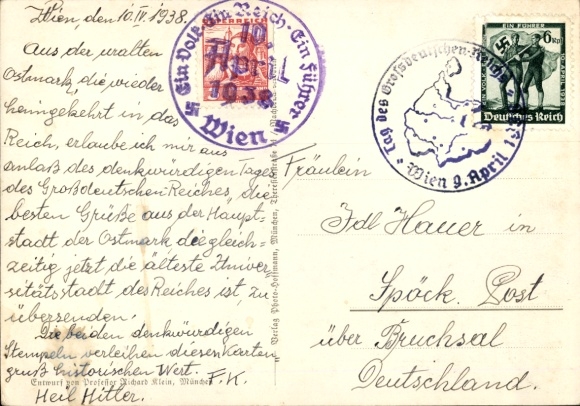 Wien, den 10.IV.1938.
Aus der uralten
Ostmark, die wieder
heimgekehrt in das
Reich, erlaube ich mir aus
anlaß des denkwürdigen Tages
des Großdeutschen Reiches, die
besten Grüße aus der Haupt-
stadt der Ostmark die gleich-
zeitig jetzt die älteste Univer-
sitätsstadt des Reiches ist, zu
übersenden.
Die beiden denkwürdigen
Stempeln verleihen diesen Karten
gruß historischen Wert.
F.K.
Heil Hitler.
Entwurf von Professor Richard Klein, München
Verlag Photo-Hoffmann, München, Theresienstraße
ÖSTERREICH
Ein Volk-Ein Reich-Ein Führer
10.
April
1938
Wien
Tag des Grossdeutschen Reiches
Wien 9. April 1938
6 Rpf
Deutsches Reich
Fräulein
Idl Hauer in
Spöck. Post
über Bruchsal
Deutschland.